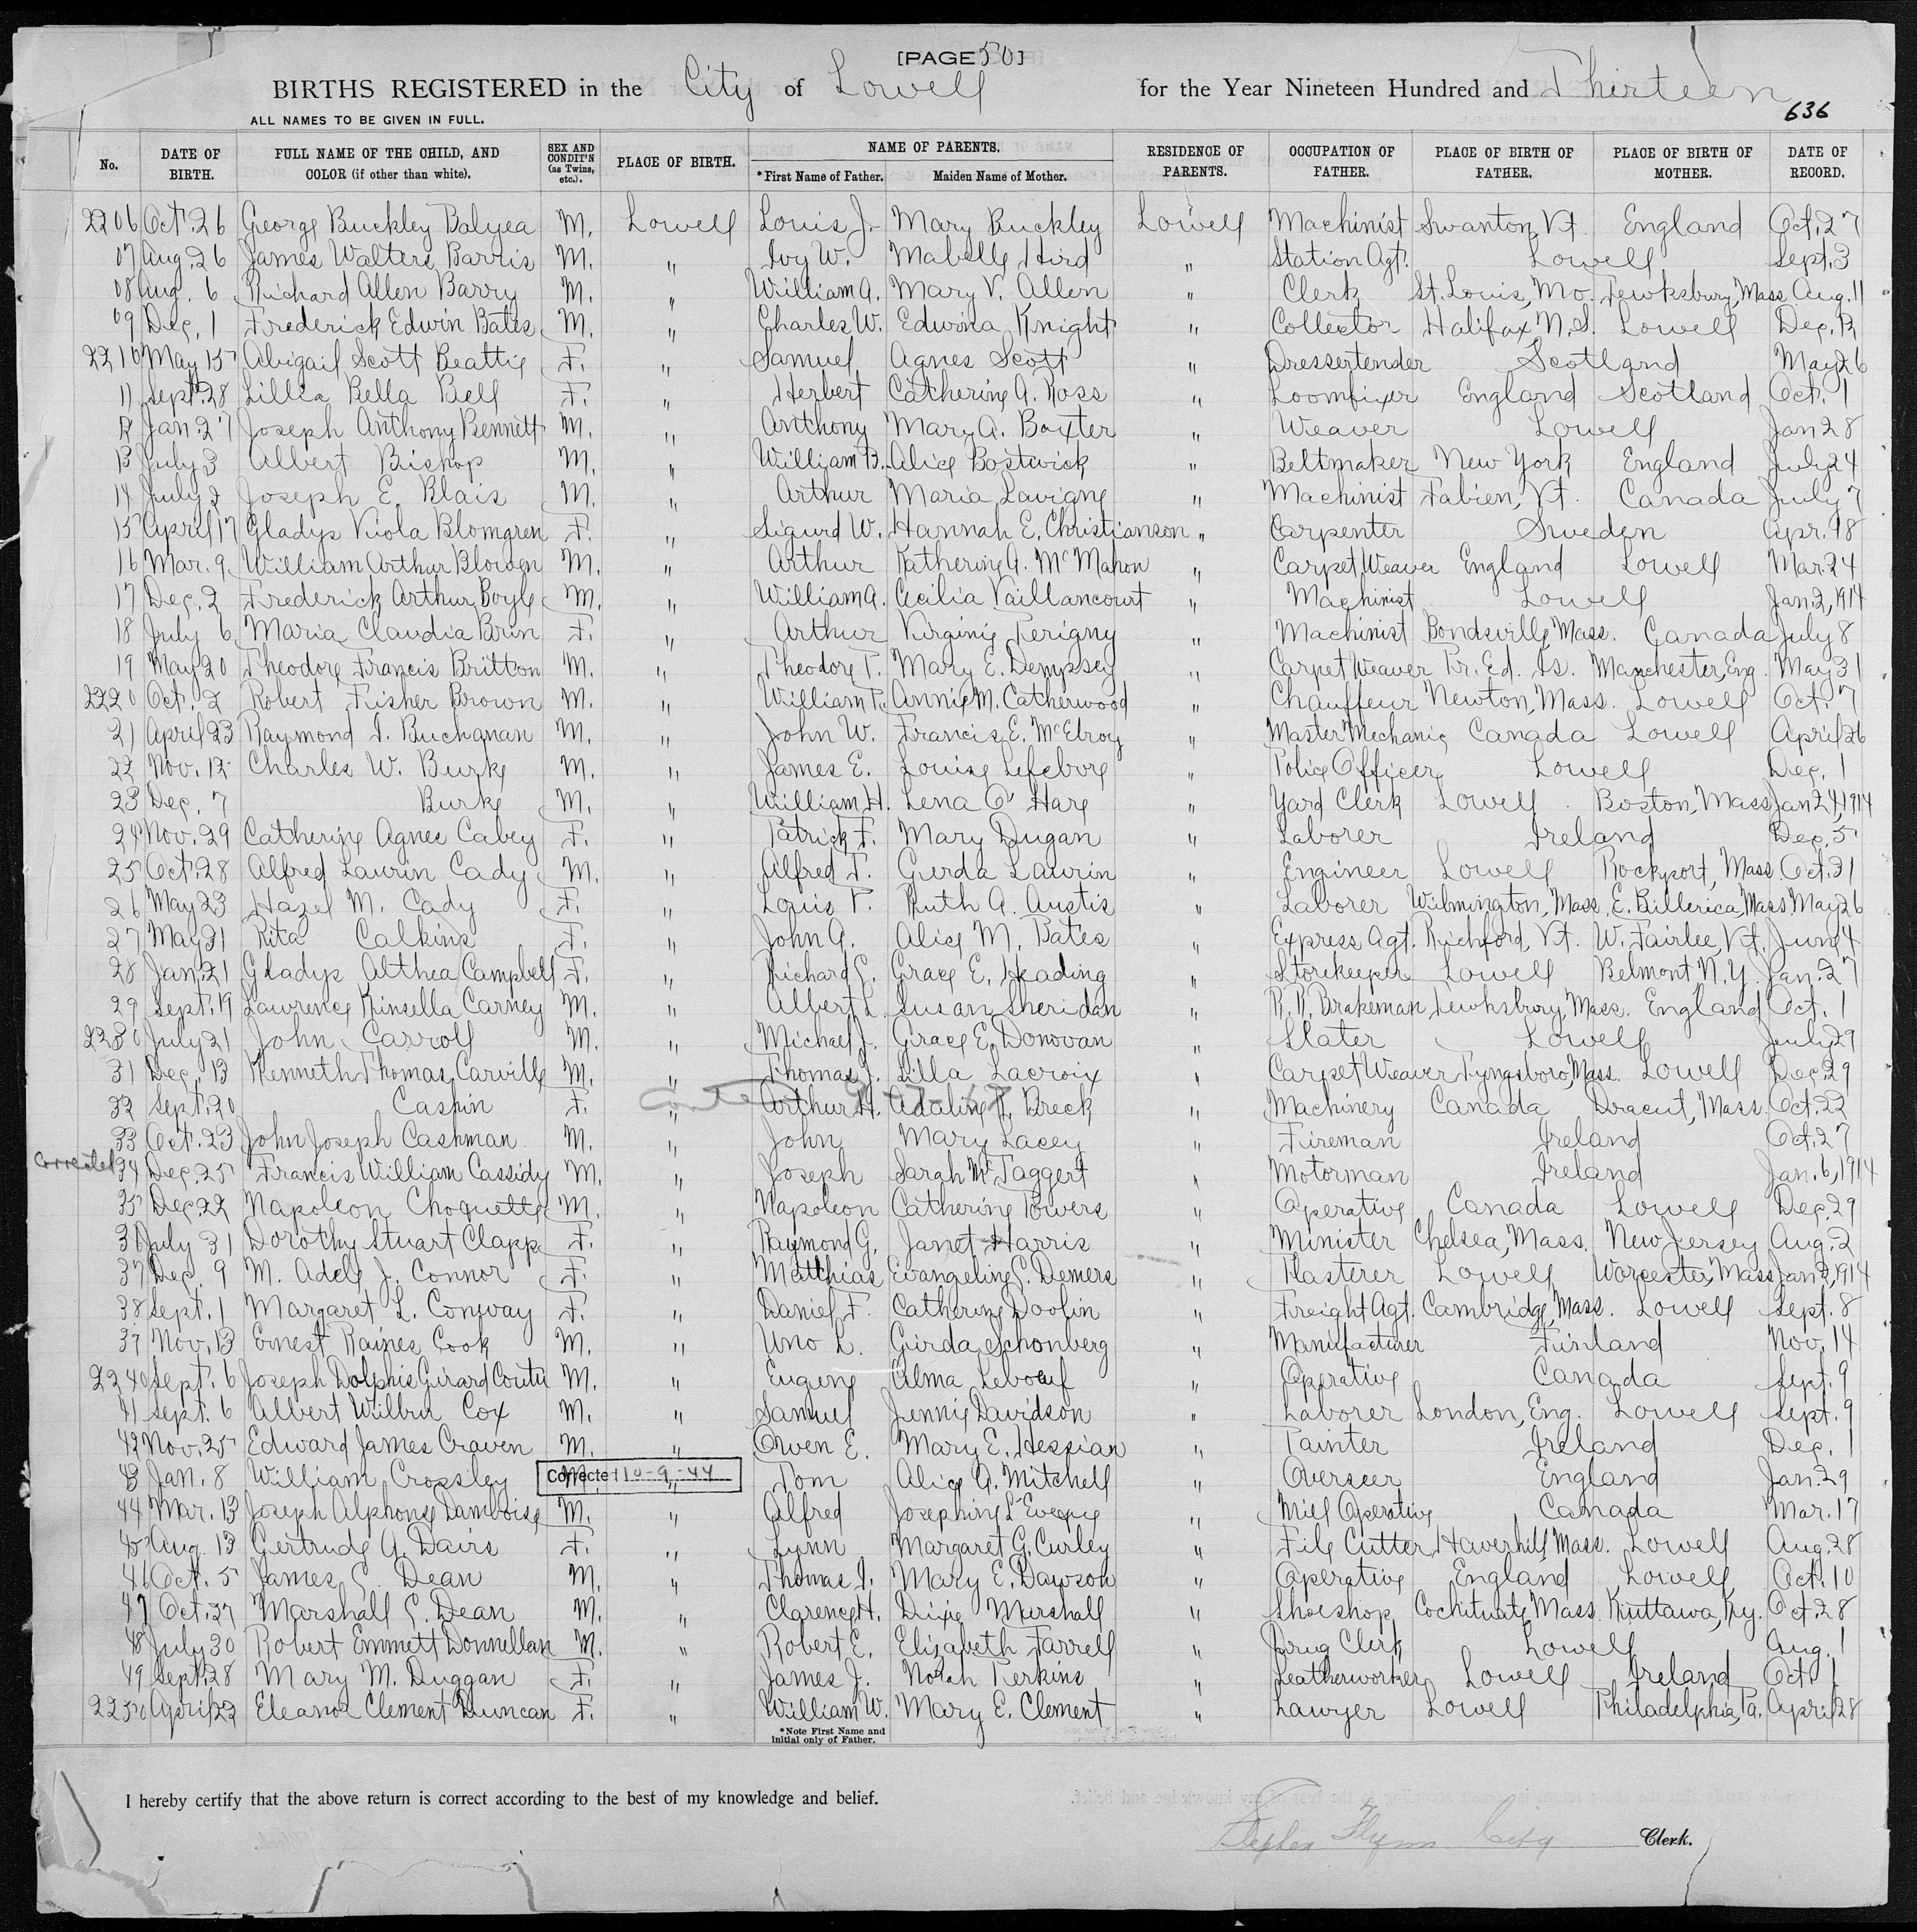 [PAGE 50]
BIRTHS REGISTERED in the City of Lowell for the Year Nineteen Hundred and Thirteen
636
ALL NAMES TO BE GIVEN IN FULL.
No. DATE OF BIRTH. FULL NAME OF THE CHILD, AND COLOR (if other than white). SEX AND CONDIT'N (as Twins, etc.). PLACE OF BIRTH. NAME OF PARENTS. *First Name of Father. Maiden Name of Mother. RESIDENCE OF PARENTS. OCCUPATION OF FATHER. PLACE OF BIRTH OF FATHER. PLACE OF BIRTH OF MOTHER. DATE OF RECORD.
2206 Oct. 26 George Buckley Balyea M. Lowell Louis J. Mary Buckley Lowell Machinist Swanton, Vt. England Oct. 27
07 Aug. 26 James Walters Barris M. " Ivy W. Mabelle Hird " Station Agt. Lowell Sept. 3
08 Aug. 6 Richard Allen Barry M. " William A. Mary V. Allen " Clerk St. Louis, Mo. Tewksbury, Mass. Aug. 11
09 Dec. 1 Frederick Edwin Bates M. " Charles W. Edwina Knight " Collector Halifax N.S. Lowell Dec. 12
2210 May 15 Abigail Scott Beattie F. " Samuel Agnes Scott " Dressertender Scotland May 26
11 Sept. 28 Lillia Bella Bell F. " Herbert Catherine A. Ross " Loomfixer England Scotland Oct. 1
12 Jan. 27 Joseph Anthony Bennett M. " Anthony Mary A. Baxter " Weaver Lowell Jan 28
13 July 3 Albert Bishop M. " William B. Alice Bostwick " Beltmaker New York England July 24
14 July 2 Joseph E. Blais M. " Arthur Maria Lavigne " Machinist Fabien, Vt. Canada July 7
15 April 17 Gladys Viola Blomgren F. " Sigurd W. Hannah E. Christianson " Carpenter Sweden Apr. 18
16 Mar. 9. William Arthur Blowen M. " Arthur Katherine A. McMahon " Carpet Weaver England Lowell Mar. 24
17 Dec. 2 Frederick Arthur Boyle M. " William A. Cecilia Vaillancourt " Machinist Lowell Jan. 2, 1914
18 July 6 Maria Claudia Brin F. " Arthur Virginie Perigny " Machinist Bondsville, Mass. Canada July 8
19 May 20 Theodore Francis Britton M. " Theodore T. Mary E. Dempsey " Carpet Weaver Pr. Ed. Is. Manchester, Eng. May 31
2220 Oct. 2 Robert Fisher Brown M. " William T. Annie M. Catherwood " Chauffeur Newton, Mass. Lowell Oct. 7
21 April 23 Raymond I. Buchanan M. " John W. Francis E. McElroy " Master Mechanic Canada Lowell April 26
22 Nov. 12 Charles W. Burke M. " James E. Louise Lefebvre " Police Officer Lowell Dec. 1
23 Dec. 7 Burke M. " William H. Lena O'Hare " Yard Clerk Lowell Boston, Mass Jan 24, 1914
24 Nov. 29 Catherine Agnes Cabey F. " Patrick F. Mary Dugan " Laborer Ireland Dec. 5
25 Oct. 28 Alfred Laurin Cady M. " Alfred T. Gerda Laurin " Engineer Lowell Rockport, Mass. Oct. 31
26 May 23 Hazel M. Cady F. " Louis T. Ruth A. Austis " Laborer Wilmington, Mass. E. Billerica, Mass May 26
27 May 31 Rita Calkins F. " John A. Alice M. Bates " Express Agt. Richford, Vt. W. Fairlee, Vt. June 4
28 Jan. 21 Gladys Althea Campbell F. " Richard C. Grace E. Heading " Storekeeper Lowell Belmont N.Y. Jan. 27
29 Sept. 19 Lawrence Kinsella Carney M. " Albert L. Susan Sheridan " R.R. Brakeman Tewksbury, Mass. England Oct. 1
2230 July 21 John Carroll M. " Michael J. Grace E. Donovan " Slater Lowell July 29
31 Dec. 13 Kenneth Thomas Carville M. " Thomas J. Lilla Lacroix " Carpet Weaver Tyngsboro, Mass. Lowell Dec. 29
32 Sept. 20 Caspin F. " Arthur H. Adaline R. Breck " Machinery Canada Dracut, Mass. Oct. 22
33 Oct. 23 John Joseph Cashman M. " John Mary Lacey " Fireman Ireland Oct. 27
Corrected 34 Dec. 25 Francis William Cassidy M. " Joseph Sarah McTaggert " Motorman Ireland Jan. 6, 1914
35 Dec. 22 Napoleon Choquette M. " Napoleon Catherine Powers " Operative Canada Lowell Dec. 29
36 July 31 Dorothy Stuart Clapp F. " Raymond G. Janet Harris " Minister Chelsea, Mass. New Jersey Aug. 2
37 Dec. 9 M. Adele J. Connor F. " Matthias Evangeline C. Demers " Plasterer Lowell Worcester, Mass Jan 3, 1914
38 Sept. 1 Margaret L. Conway F. " Daniel F. Catherine Doolin " Freight Agt. Cambridge, Mass. Lowell Sept. 8
39 Nov. 13 Ernest Raines Cook M. " Uno L. Girda Schonberg " Manufacturer Finland Nov. 14
2240 Sept. 6 Joseph Dolphis Girard Coutu M. " Eugene Alma Leboeuf " Operative Canada Sept. 9
41 Sept. 6 Albert Wilbur Cox M. " Samuel Jennie Davidson " Laborer London, Eng. Lowell Sept. 9
42 Nov. 25 Edward James Craven M. " Owen E. Mary E. Hessian " Painter Ireland Dec. 1
43 Jan. 8 William Crossley M. Corrected 10-9-44 " Tom Alice A. Mitchell " Overseer England Jan. 29
44 Mar. 13 Joseph Alphonse Damboise M. " Alfred Josephine L'Eveque " Mill Operative Canada Mar. 17
45 Aug. 13 Gertrude A. Dairs F. " Lynn Margaret G. Curley " File Cutter Haverhill Mass. Lowell Aug. 28
46 Oct. 5 James C. Dean M. " Thomas I. Mary E. Dawson " Operative England Lowell Oct. 10
47 Oct. 27 Marshall C. Dean M. " Clarence H. Dixie Marshall " Shoeshop Cochituate Mass. Kuttawa, Ky. Oct. 28
48 July 30 Robert Emmett Donnellan M. " Robert E. Elizabeth Farrell " Drug Clerk Lowell Aug. 1
49 Sept. 28 Mary M. Duggan F. " James J. Norah Perkins " Leatherworker Lowell Ireland Oct. 1
2250 April 22 Eleanor Clement Duncan F. " William W. Mary E. Clement " Lawyer Lowell Philadelphia, Pa. April 28
*Note First Name and initial only of Father.
I hereby certify that the above return is correct according to the best of my knowledge and belief.
Stephen Flynn City Clerk.